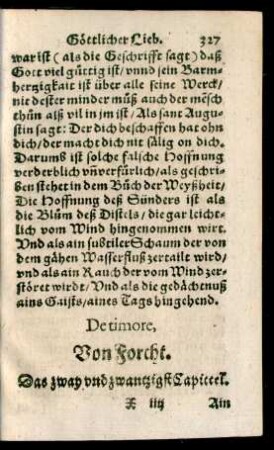 Göttlicher Lieb. 327
war ist ( als die Geschrifft sagt ) daß
Gott viel güttig ist / vnnd sein Barm⸗
hertzigkait ist über alle seine Werck /
nit dester minder müß auch der mẽsch
thün alß vil in jm ist / Als sant Augu⸗
stin sagt: Der dich beschaffen hat ohn
dich / der macht dich nit sälig on dich.
Darumb ist solche falsche Hoffnung
verderblich vñ verfürlich / als geschri⸗
ben stehet in dem Büch der Weyßheit /
Die Hoffnung deß Sünders ist als
die Blüm deß Distels / die gar leicht⸗
lich vom Wind hingenommen wirt.
Vnd als ain subtiler Schaum der von
dem gähen Wasserfluß zertailt wird /
vnd als ain Rauch der vom Wind zer⸗
störet wirdt / Vnd als die gedächtnuß
ains Gaists / aines Tags hingehend.
De timore,
Von Forcht.
Das zway vnd zwantzigst Capittel.
X iiij Ain